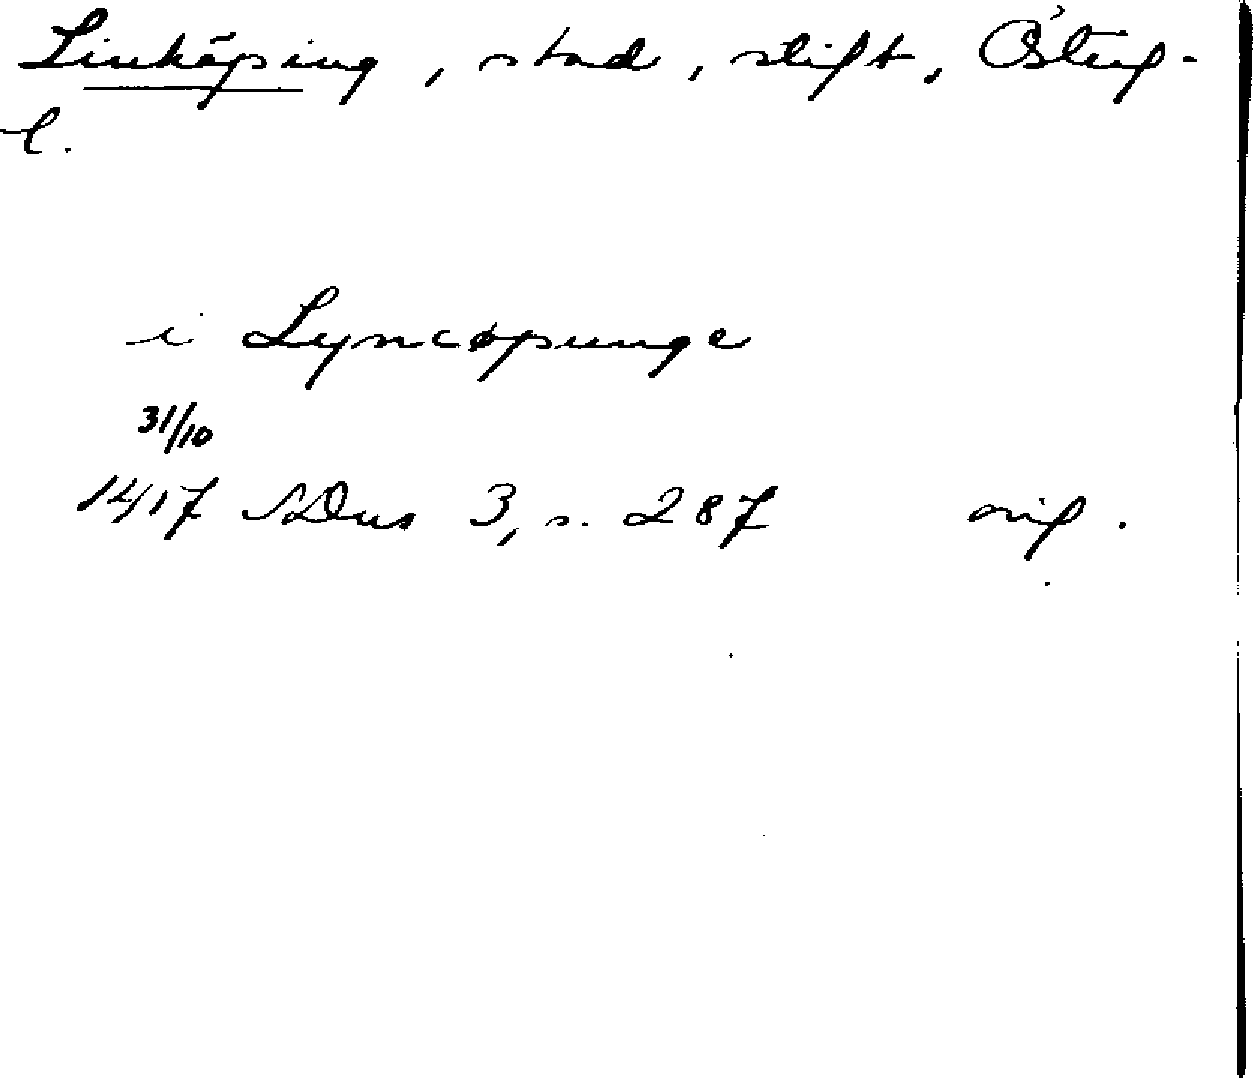 Linköping, stad, stift, Österg-
l.
i Lyncøpunge
31/10
1417 SDns 3, s. 287 orig.